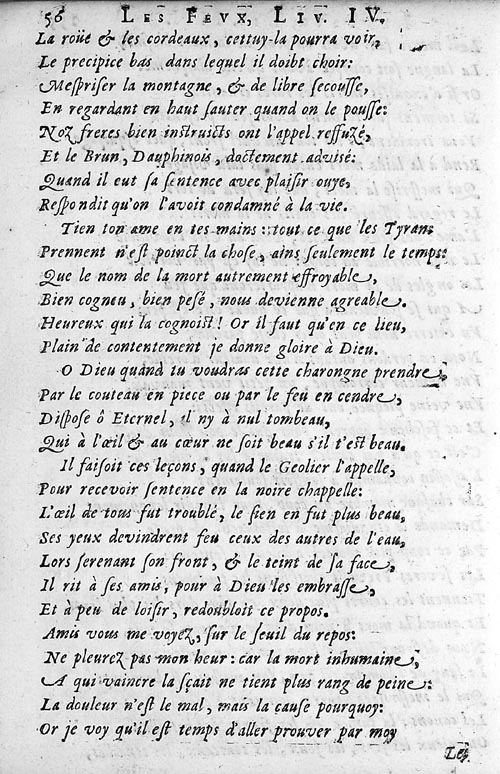 56 LES FEVX, LIV. IV.
La roüe & les cordeaux, cettuy-la pourra voir,
Le precipice bas dans lequel il doibt choir:
Mespriser la montagne, & de libre secousse,
En regardant en haut sauter quand on le pousse:
Noz freres bien instruicts ont l'appel reffuzé,
Et le Brun, Dauphinois, doctement advisé:
Quand il eut sa sentence avec plaisir ouye,
Respondit qu'on l'avoit condamné à la vie.
Tien ton ame en tes mains: tout ce que les Tyrans
Prennent n'est poinct la chose, ains seulement le temps:
Que le nom de la mort autrement effroyable,
Bien cogneu, bien pesé, nous devienne agreable.
Heureux qui la cognoist! Or il faut qu'en ce lieu,
Plain de contentement je donne gloire à Dieu.
O Dieu quand tu voudras cette charongne prendre,
Par le couteau en piece ou par le feu en cendre,
Dispose ô Eternel, il ny à nul tombeau,
Qui à l'œil & au cœur ne soit beau s'il t'est beau.
Il faisoit ces leçons, quand le Geolier l'appelle,
Pour recevoir sentence en la noire chappelle:
L'œil de tous fut troublé, le sien en fut plus beau,
Ses yeux devindrent feu ceux des autres de l'eau,
Lors serenant son front, & le teint de sa face,
Il rit à ses amis, pour à Dieu les embrasse,
Et à peu de loisir, redoubloit ce propos.
Amis vous me voyez, sur le seuil du repos:
Ne pleurez pas mon heur: car la mort inhumaine,
A qui vaincre la sçait ne tient plus rang de peine:
La douleur n'est le mal, mais la cause pourquoy:
Or je voy qu'il est temps d'aller prouver par moy
Les